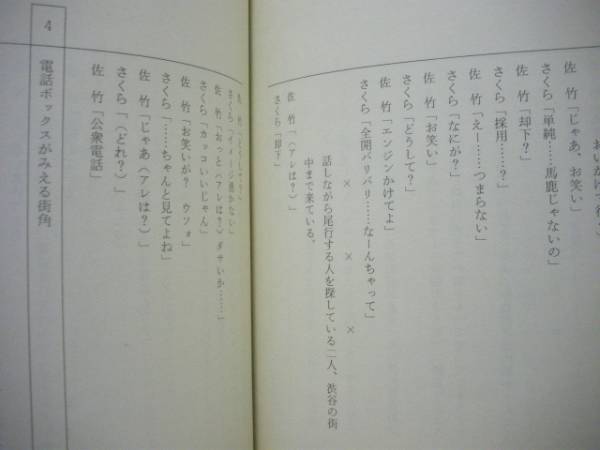 佐　竹「じゃあ、お笑い」
さくら「単純……馬鹿じゃないの」
佐　竹「却下？」
さくら「採用……？」
佐　竹「えー……つまらない」
さくら「なにが？」
佐　竹「お笑い」
さくら「どうして？」
佐　竹「エンジンかけてよ」
さくら「全開バリバリ……なーんちゃって」
×　×　×
話しながら尾行する人を探している二人、渋谷の街
中まで来ている。
佐　竹「（アレは？）」
さくら「却下」
さくら「イメージ湧かない」
佐　竹「おっと（アレは？）ダサいか……」
さくら「カッコいいじゃん」
佐　竹「お笑いが？　ウツォ」
さくら「……ちゃんと見てよね」
佐　竹「じゃあ（アレは？）」
さくら「（どれ？）」
佐　竹「公衆電話」
4　電話ボックスがみえる街角